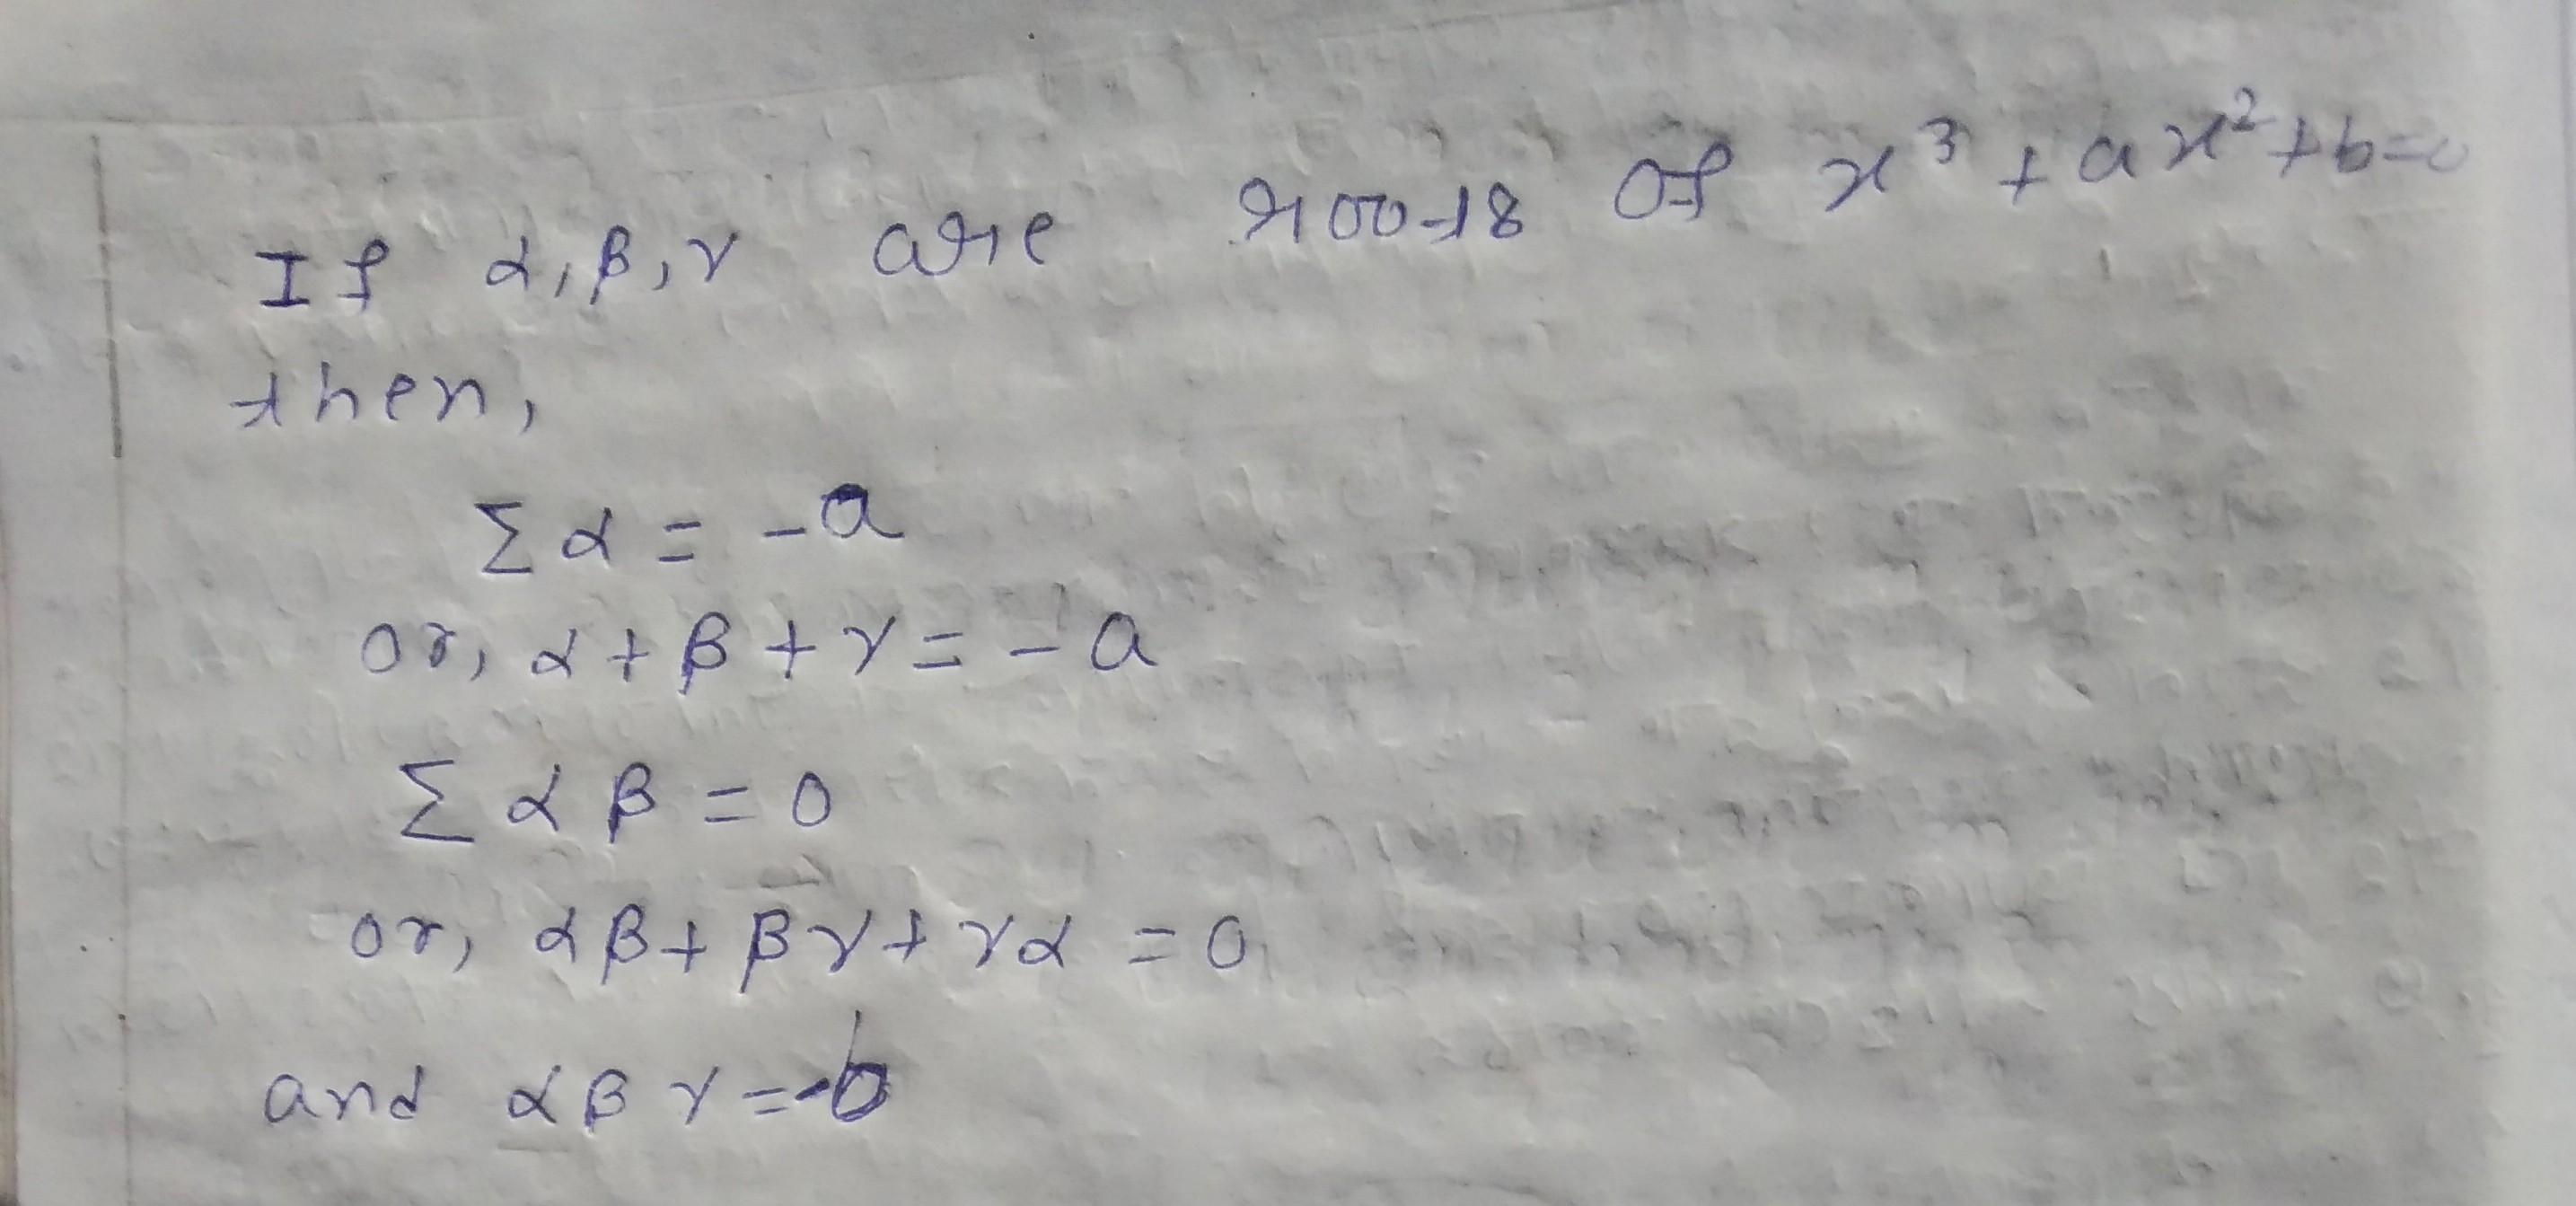 If α, β, γ are roots of x³ + ax² + b = 0
then,
Σα = -a
or, α + β + γ = - a
Σαβ = 0
or, αβ + βγ + γα = 0
and αβγ = -b